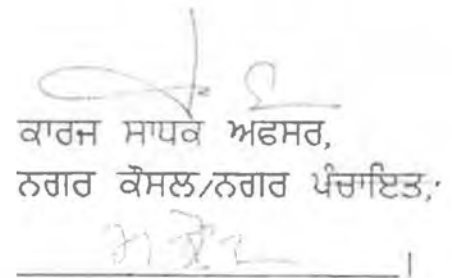 ਕਾਰਜ ਸਾਧਕ ਅਫਸਰ,
ਨਗਰ ਕੌਂਸਲ/ਨਗਰ ਪੰਚਾਇਤ,